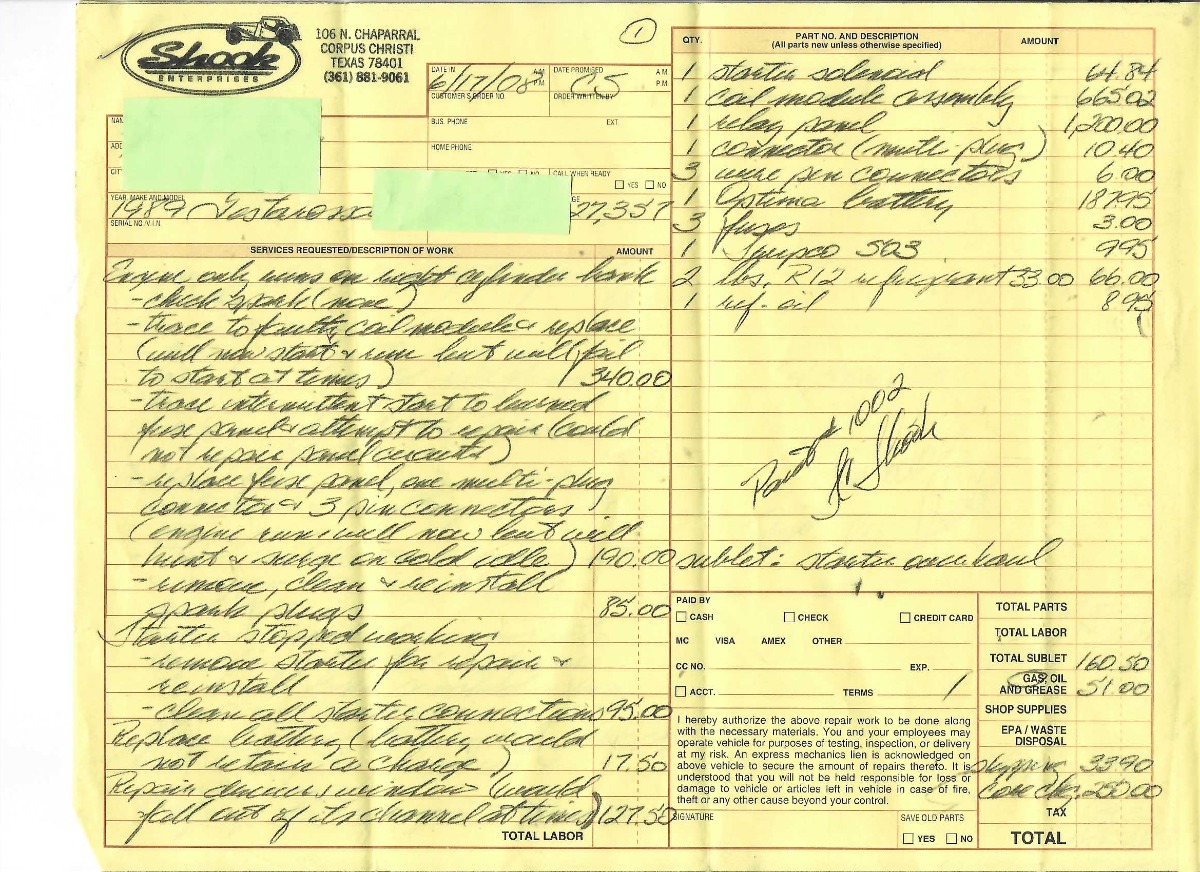 Shook
ENTERPRISES
106 N. CHAPARRAL
CORPUS CHRISTI
TEXAS 78401
(361) 881-9061
1
DATE IN
6/17/08
A M
P M
DATE PROMISED
A M
P M
CUSTOMER'S ORDER NO.
ORDER WRITTEN BY
CS
NAM
BUS. PHONE
EXT.
ADD
HOME PHONE
CIT
YES NO
CALL WHEN READY
YES NO
YEAR, MAKE AND MODEL
1989 Testarossa
27,357
SERIAL NO./V.I.N.
SERVICES REQUESTED/DESCRIPTION OF WORK AMOUNT
Engine only runs on right cylinder bank
- check spark (none)
- trace to faulty coil module & replace
(will now start & run but will fail
to start at times) 340.00
- trace intermittent start to burned
fuse panel & attempt to repair (could
not repair panel circuits)
- replace fuse panel, one multi-plug
connector & 3 pin connectors
(engine runs well now but will
hunt & surge on cold idle) 190.00
- remove, clean & reinstall
spark plugs 85.00
Starter stopped working
- remove starter for repair &
reinstall
- clean all starter connections 95.00
Replace battery (battery would
not retain a charge) 17.50
Repair drivers window (would
fall out of its channel at times) 127.50
TOTAL LABOR
QTY. PART NO. AND DESCRIPTION AMOUNT
(All parts new unless otherwise specified)
1 starter solenoid 64.84
1 coil module assembly 665.02
1 relay panel 1,200.00
1 connector (multi-plug) 10.40
3 wire pin connectors 6.00
1 Optima battery 187.95
3 fuses 3.00
1 503 9.95
2 lbs. R12 refrigerant 33.00 66.00
1 ref. oil 8.95
1002
Shook
sublet: starter overhaul
PAID BY
CASH CHECK CREDIT CARD
MC VISA AMEX OTHER
CC NO. EXP.
ACCT. TERMS
I hereby authorize the above repair work to be done along
with the necessary materials. You and your employees may
operate vehicle for purposes of testing, inspection, or delivery
at my risk. An express mechanics lien is acknowledged on
above vehicle to secure the amount of repairs thereto. It is
understood that you will not be held responsible for loss or
damage to vehicle or articles left in vehicle in case of fire,
theft or any other cause beyond your control.
SIGNATURE
SAVE OLD PARTS
YES NO
TOTAL PARTS
TOTAL LABOR
TOTAL SUBLET 160.50
GAS, OIL
AND GREASE 51.00
SHOP SUPPLIES
EPA / WASTE
DISPOSAL
shipping 33.90
Core chg 250.00
TAX
TOTAL